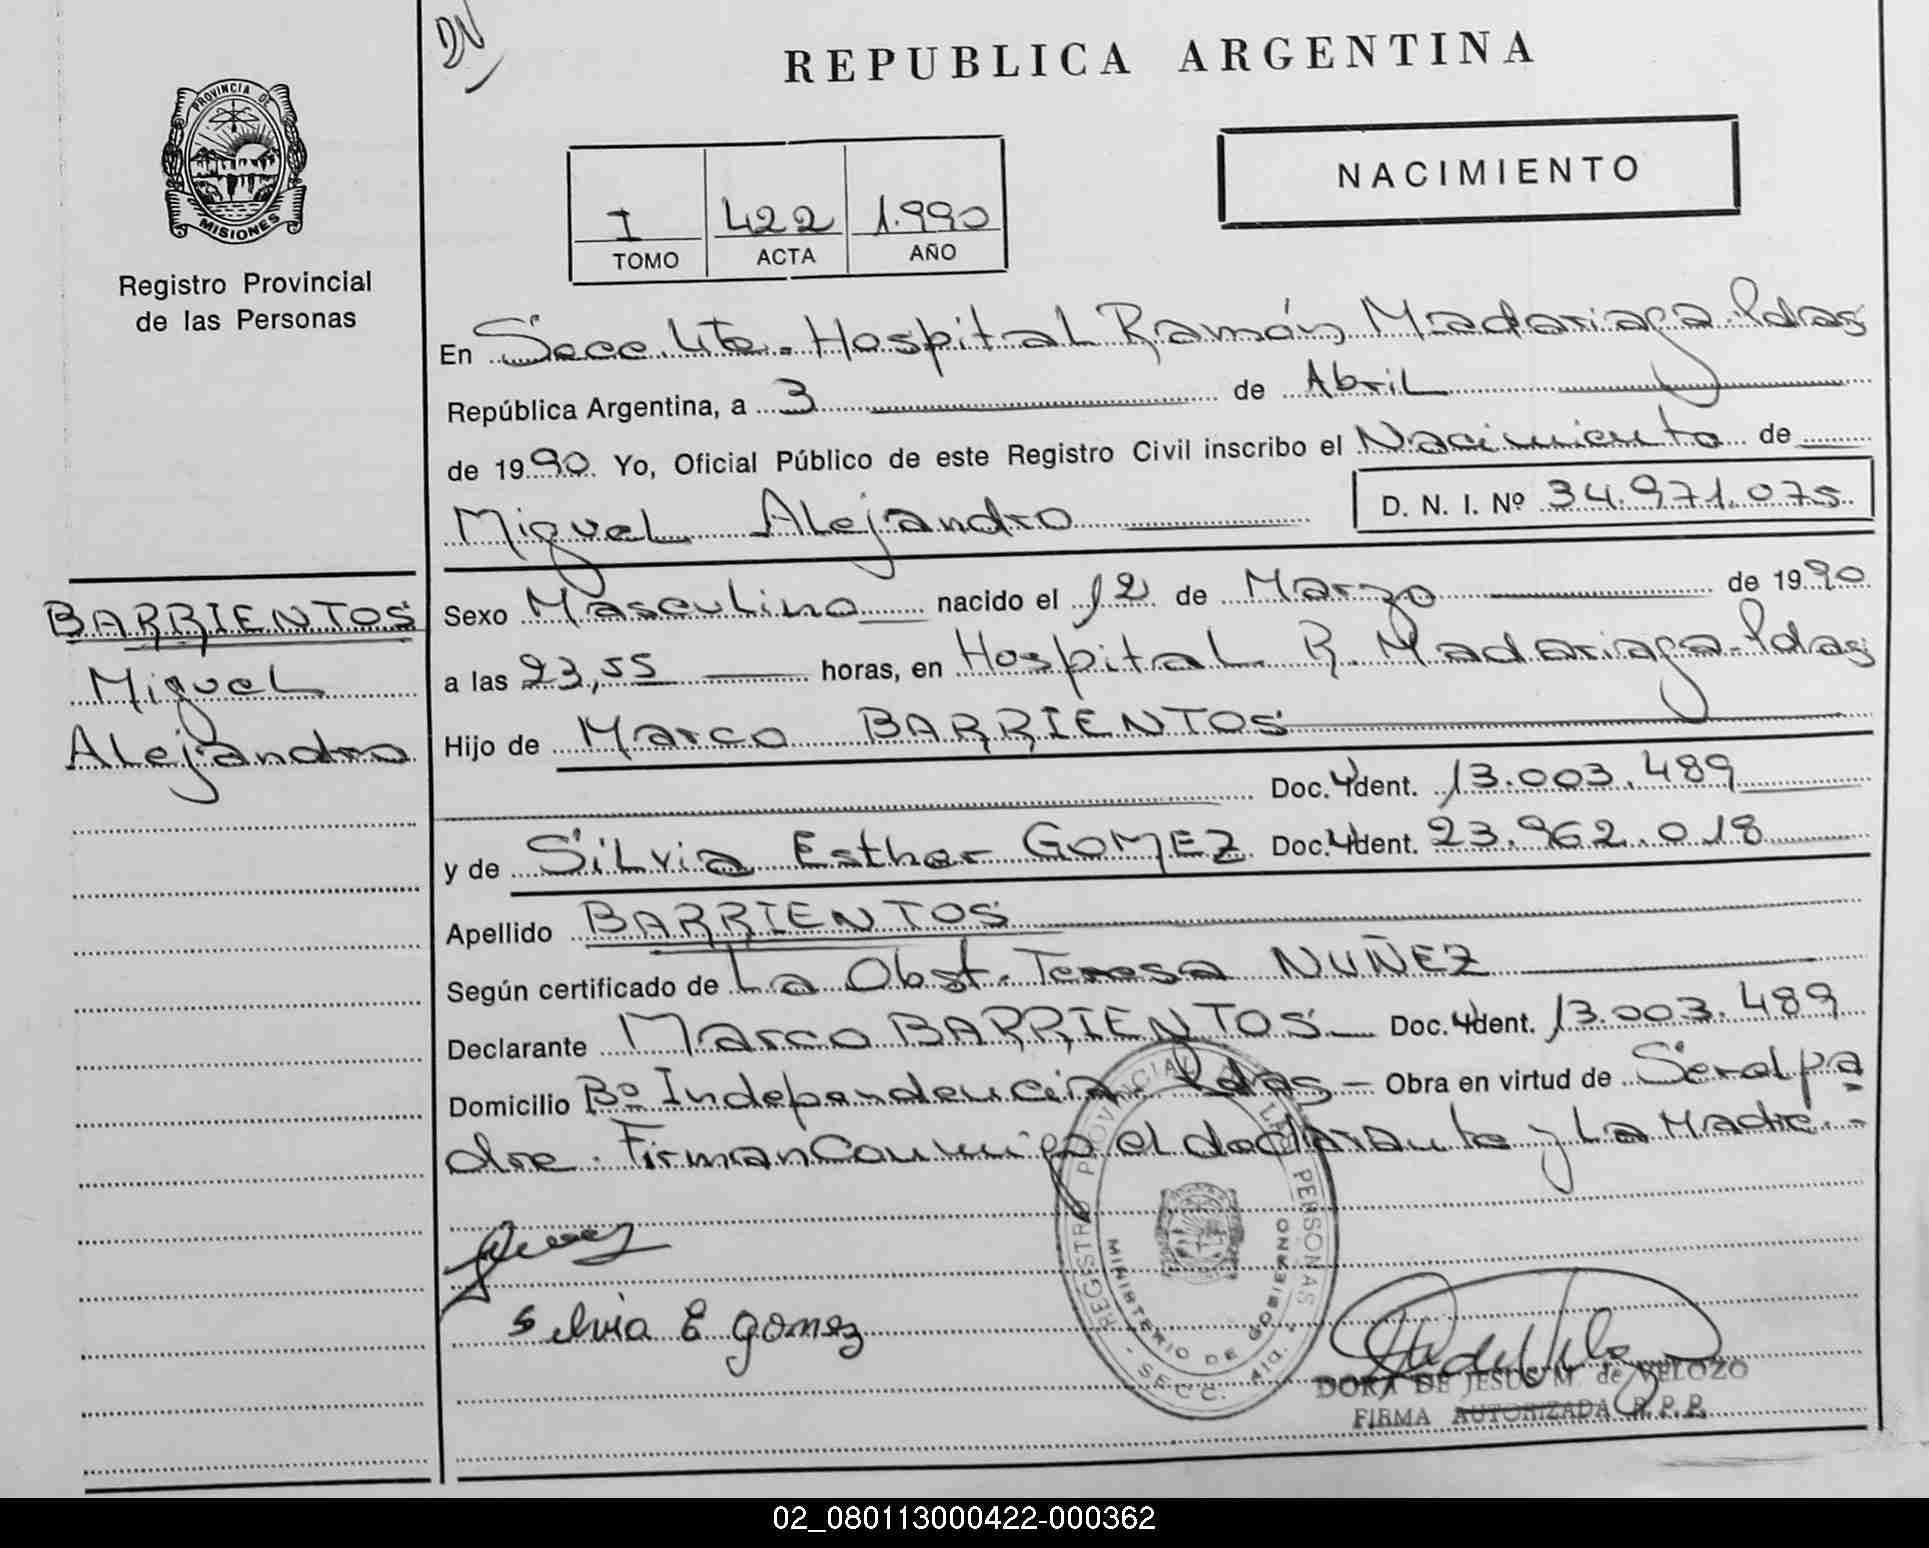 DN
REPUBLICA ARGENTINA
PROVINCIA DE
MISIONES
Registro Provincial
de las Personas
I 422 1.990
TOMO ACTA AÑO
NACIMIENTO
En Secc. 4ta. Hospital Ramón Madariaga-Pdas
República Argentina, a 3 de Abril
de 1990. Yo, Oficial Público de este Registro Civil inscribo el Nacimiento de
Miguel Alejandro D. N. I. Nº 34.971.075
BARRIENTOS
Miguel
Alejandro
Sexo Masculino nacido el 12 de Marzo de 1990
a las 23,55 horas, en Hospital R. Madariaga-Pdas
Hijo de Marco BARRIENTOS
Doc. Ident. 13.003.489
y de Silvia Esther GOMEZ Doc. Ident. 23.962.018
Apellido BARRIENTOS
Según certificado de La Obst. Teresa NUÑEZ
Declarante Marco BARRIENTOS Doc. Ident. 13.003.489
Domicilio Bº Independencia Pdas - Obra en virtud de Ser el pa
dre. Firman conmigo el declarante y La Madre.-
Silvia E gomez
REGISTRO PROVINCIAL DE LAS PERSONAS
MINISTERIO DE GOBIERNO
DORA DE JESUS M. de VELOZO
FIRMA AUTORIZADA R. P. P.
02_080113000422-000362